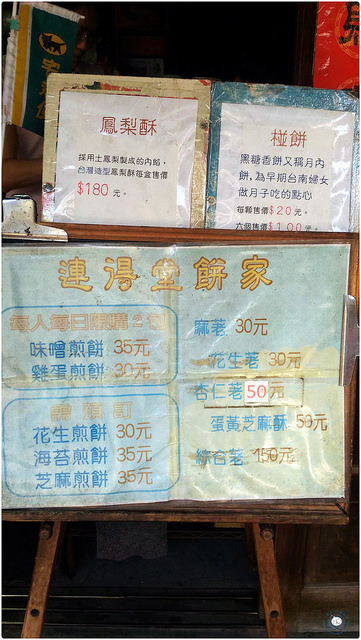 鳳梨酥
採用土鳳梨製成的內餡，
台灣造型鳳梨酥每盒售價
$180元。
椪餅
黑糖香餅又稱月內
餅，為早期台南婦女
做月子吃的點心
每顆售價$20元。
六個售價$100元
連得堂餅家
每人每日限購2包
味噌煎餅 35元
雞蛋煎餅 30元
花生煎餅 30元
海苔煎餅 35元
芝麻煎餅 35元
麻荖 30元
花生荖 30元
杏仁荖 50元
蛋黃芝麻酥 50元
綜合荖 150元